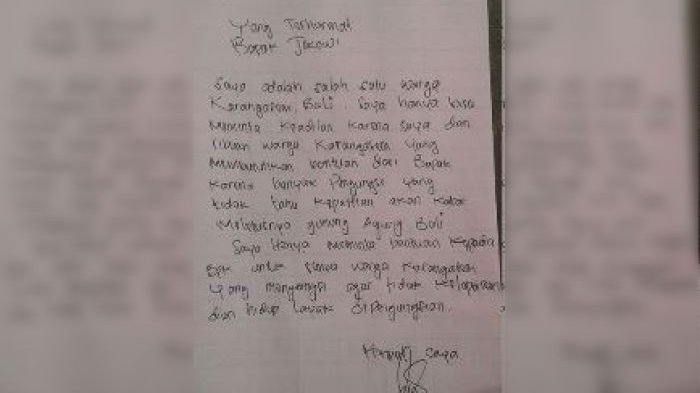 Yang Terhormat
Bapak Jokowi
Saya adalah salah satu warga
Karangasem, Bali. Saya hanya bisa
Meminta Keadilan Karena Saya dan
ribuan warga Karangasem yang
Membutuhkan bantuan dari Bapak
Karena banyak Pengungsi yang
tidak tahu Kepastian akan Kabar
Meletusnya gunung Agung Bali
Saya Hanya Meminta bantuan Kepada
BPK untuk semua warga Karangasem
yang mengungsi agar tidak Kelaparan
dan hidup Layak di Pengungsian.
saya